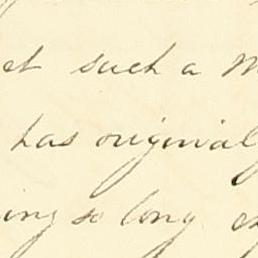 et such a m
has original
ing so long e